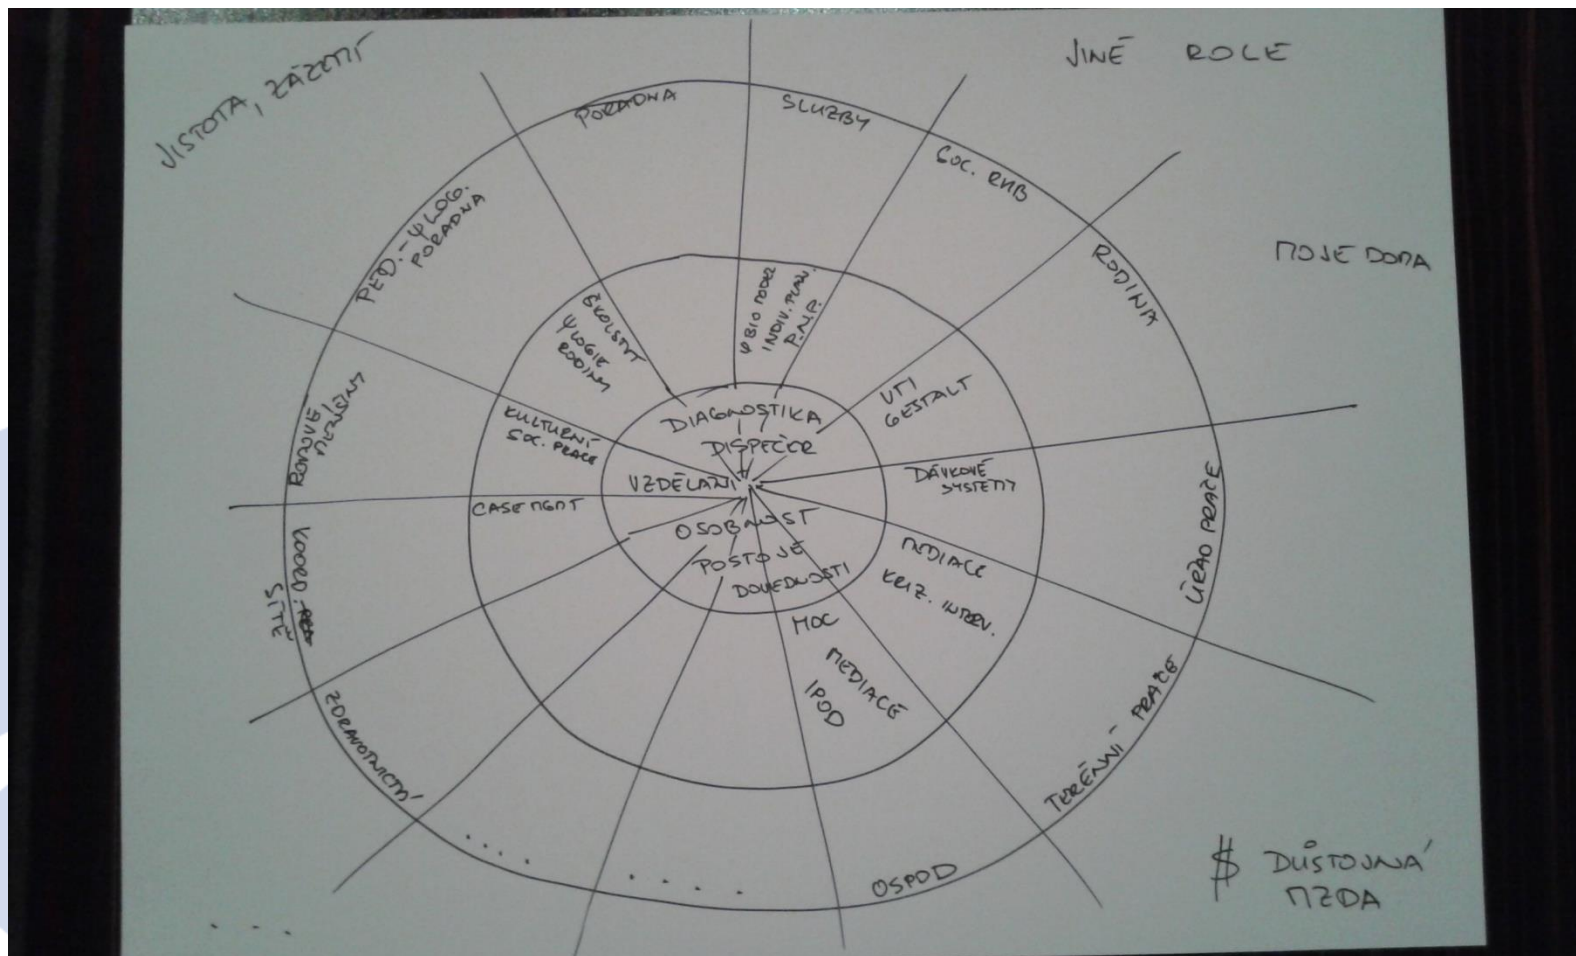 JISTOTA, ZÁZEMÍ
JINÉ ROLE
MOJE DOMA
$ DŮSTOJNÁ
MZDA
PORADNA
SLUŽBY
SOC. RHB
RODINA
ÚŘAD PRÁCE
TERÉNNÍ PRÁCE
OSPOD
. . . .
. . . .
ZDRAVOTNICTVÍ
KOORD.
SÍTĚ
ROZVOJOVÉ
PED.-ΨLOG.
PORADNA
ŠKOLSTVÍ
ΨLOGIE
RODINY
Ψ BIO MODEL
INDIV. PLÁN.
P.N.P.
VTI
GESTALT
DÁVKOVÉ
SYSTÉMY
MEDIACE
KRIZ. INTERV.
MOC
MEDIACE
IPOD
CASE MGMT
KULTURNÍ
SOC. PRÁCE
DIAGNOSTIKA
DISPEČER
VZDĚLÁNÍ
OSOBNOST
POSTOJE
DOVEDNOSTI
. . .